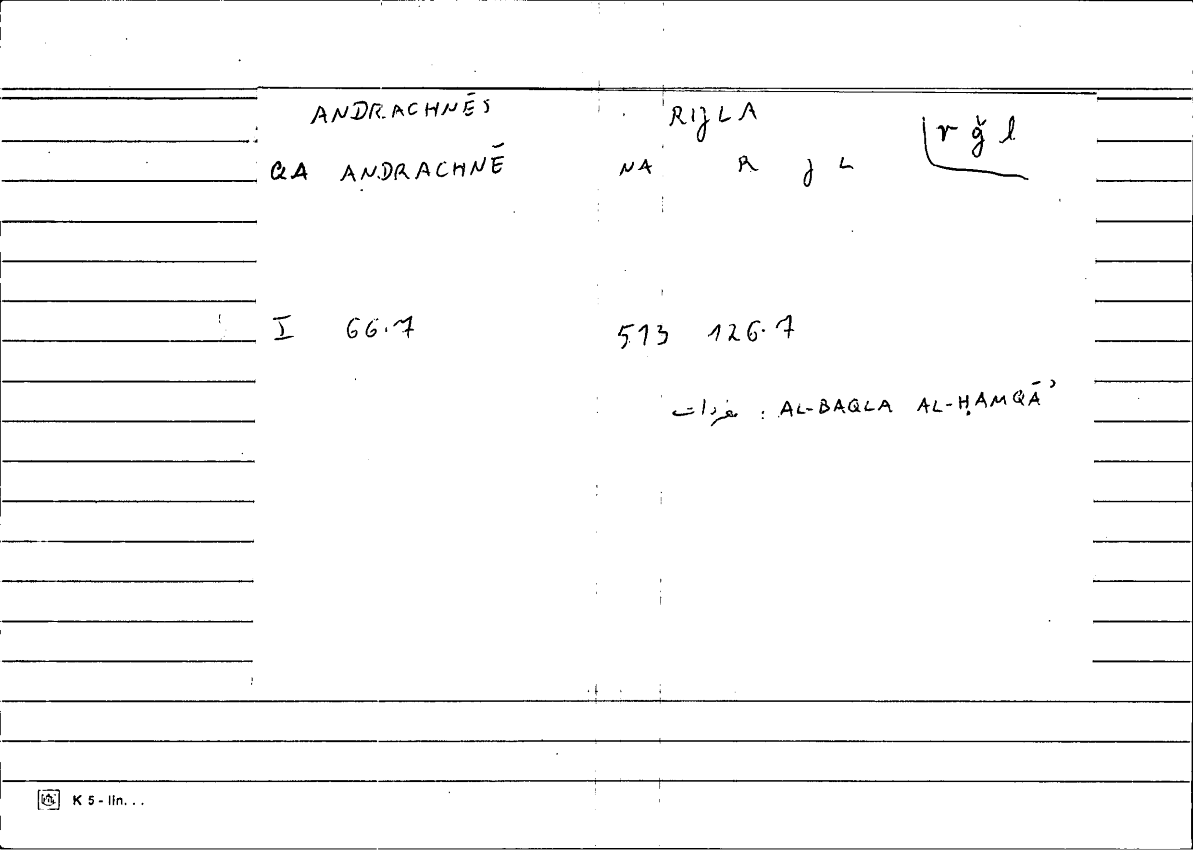 ANDRACHNĒS RIJLA
r ǧ l
QA ANDRACHNĒ NA R J L
I 66.7 513 126.7
مفردات : AL-BAQLA AL-ḤAMQĀʾ
K 5 - lin. . .